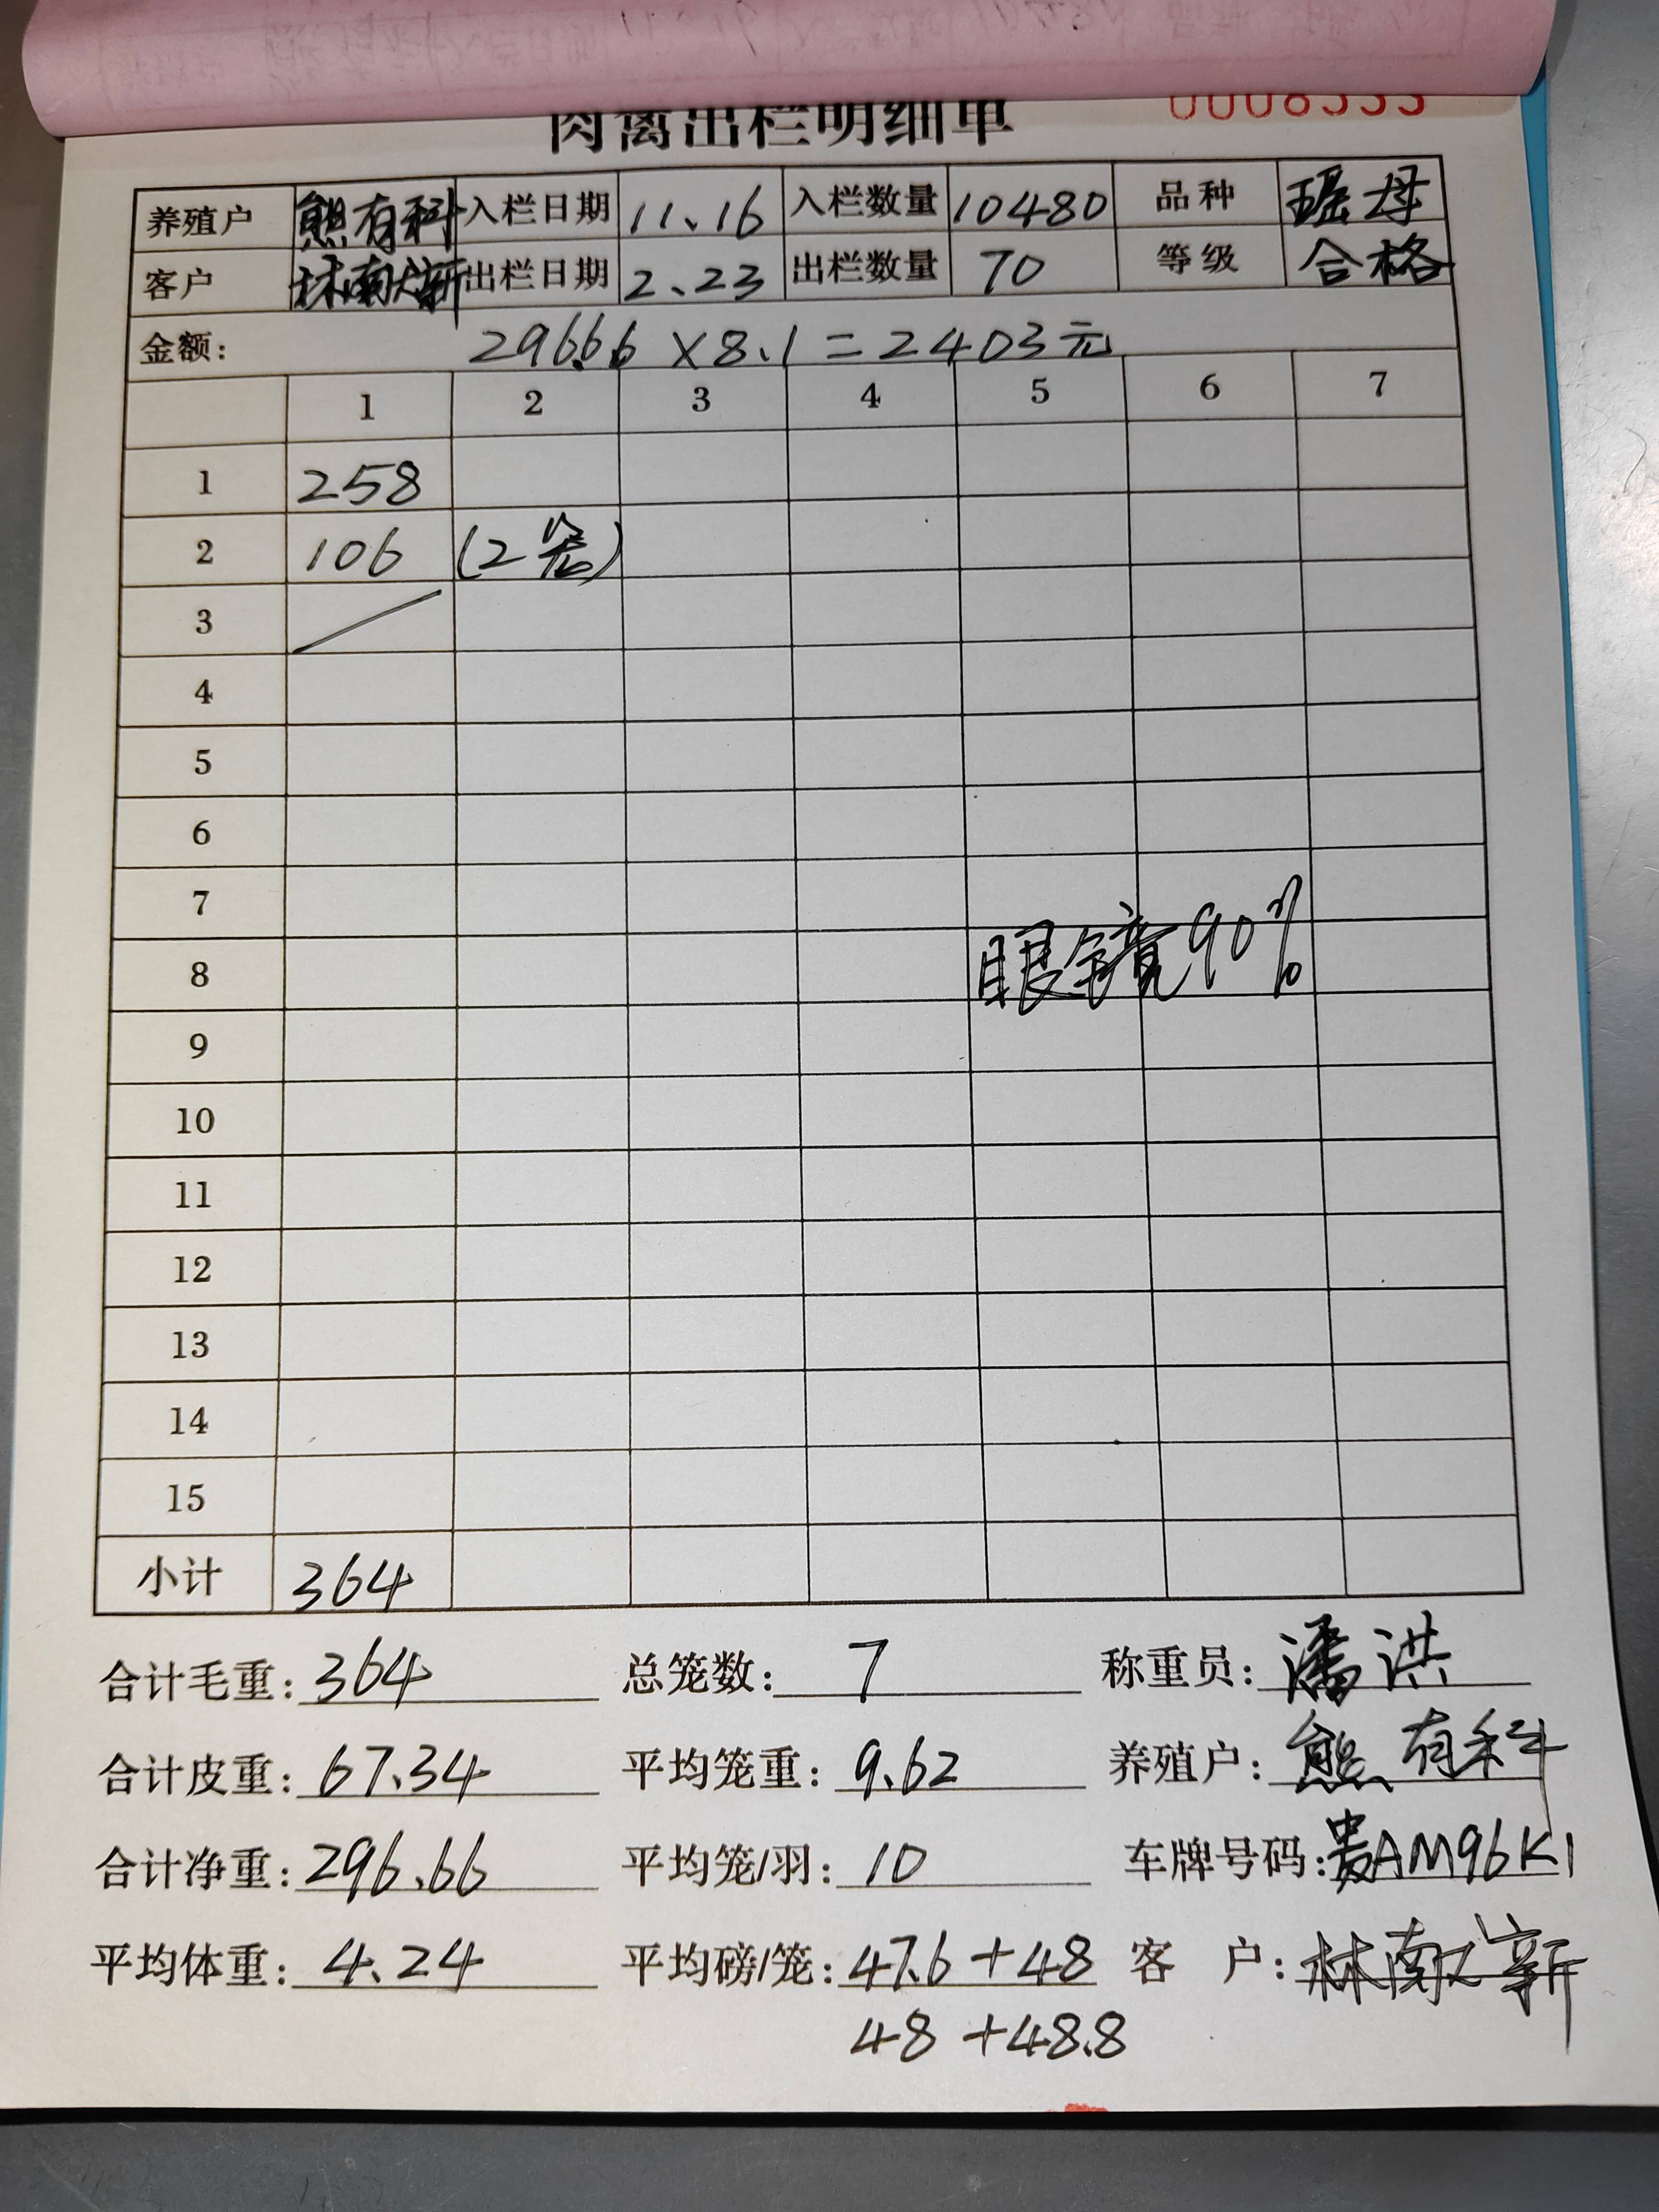 肉禽出栏明细单 0008533
养殖户 熊有科 入栏日期 11.16 入栏数量 10480 品种 瑶母
客户 林南大新 出栏日期 2.23 出栏数量 70 等级 合格
金额: 296.66 × 8.1 = 2403元
1 2 3 4 5 6 7
1 258
2 106 (2笼)
3
4
5
6
7
8 眼镜90%
9
10
11
12
13
14
15
小计 364
合计毛重: 364 总笼数: 7 称重员: 潘洪
合计皮重: 67.34 平均笼重: 9.62 养殖户: 熊有科
合计净重: 296.66 平均笼/羽: 10 车牌号码: 贵AM96K1
平均体重: 4.24 平均磅/笼: 47.6+48 客 户: 林南
48+48.8